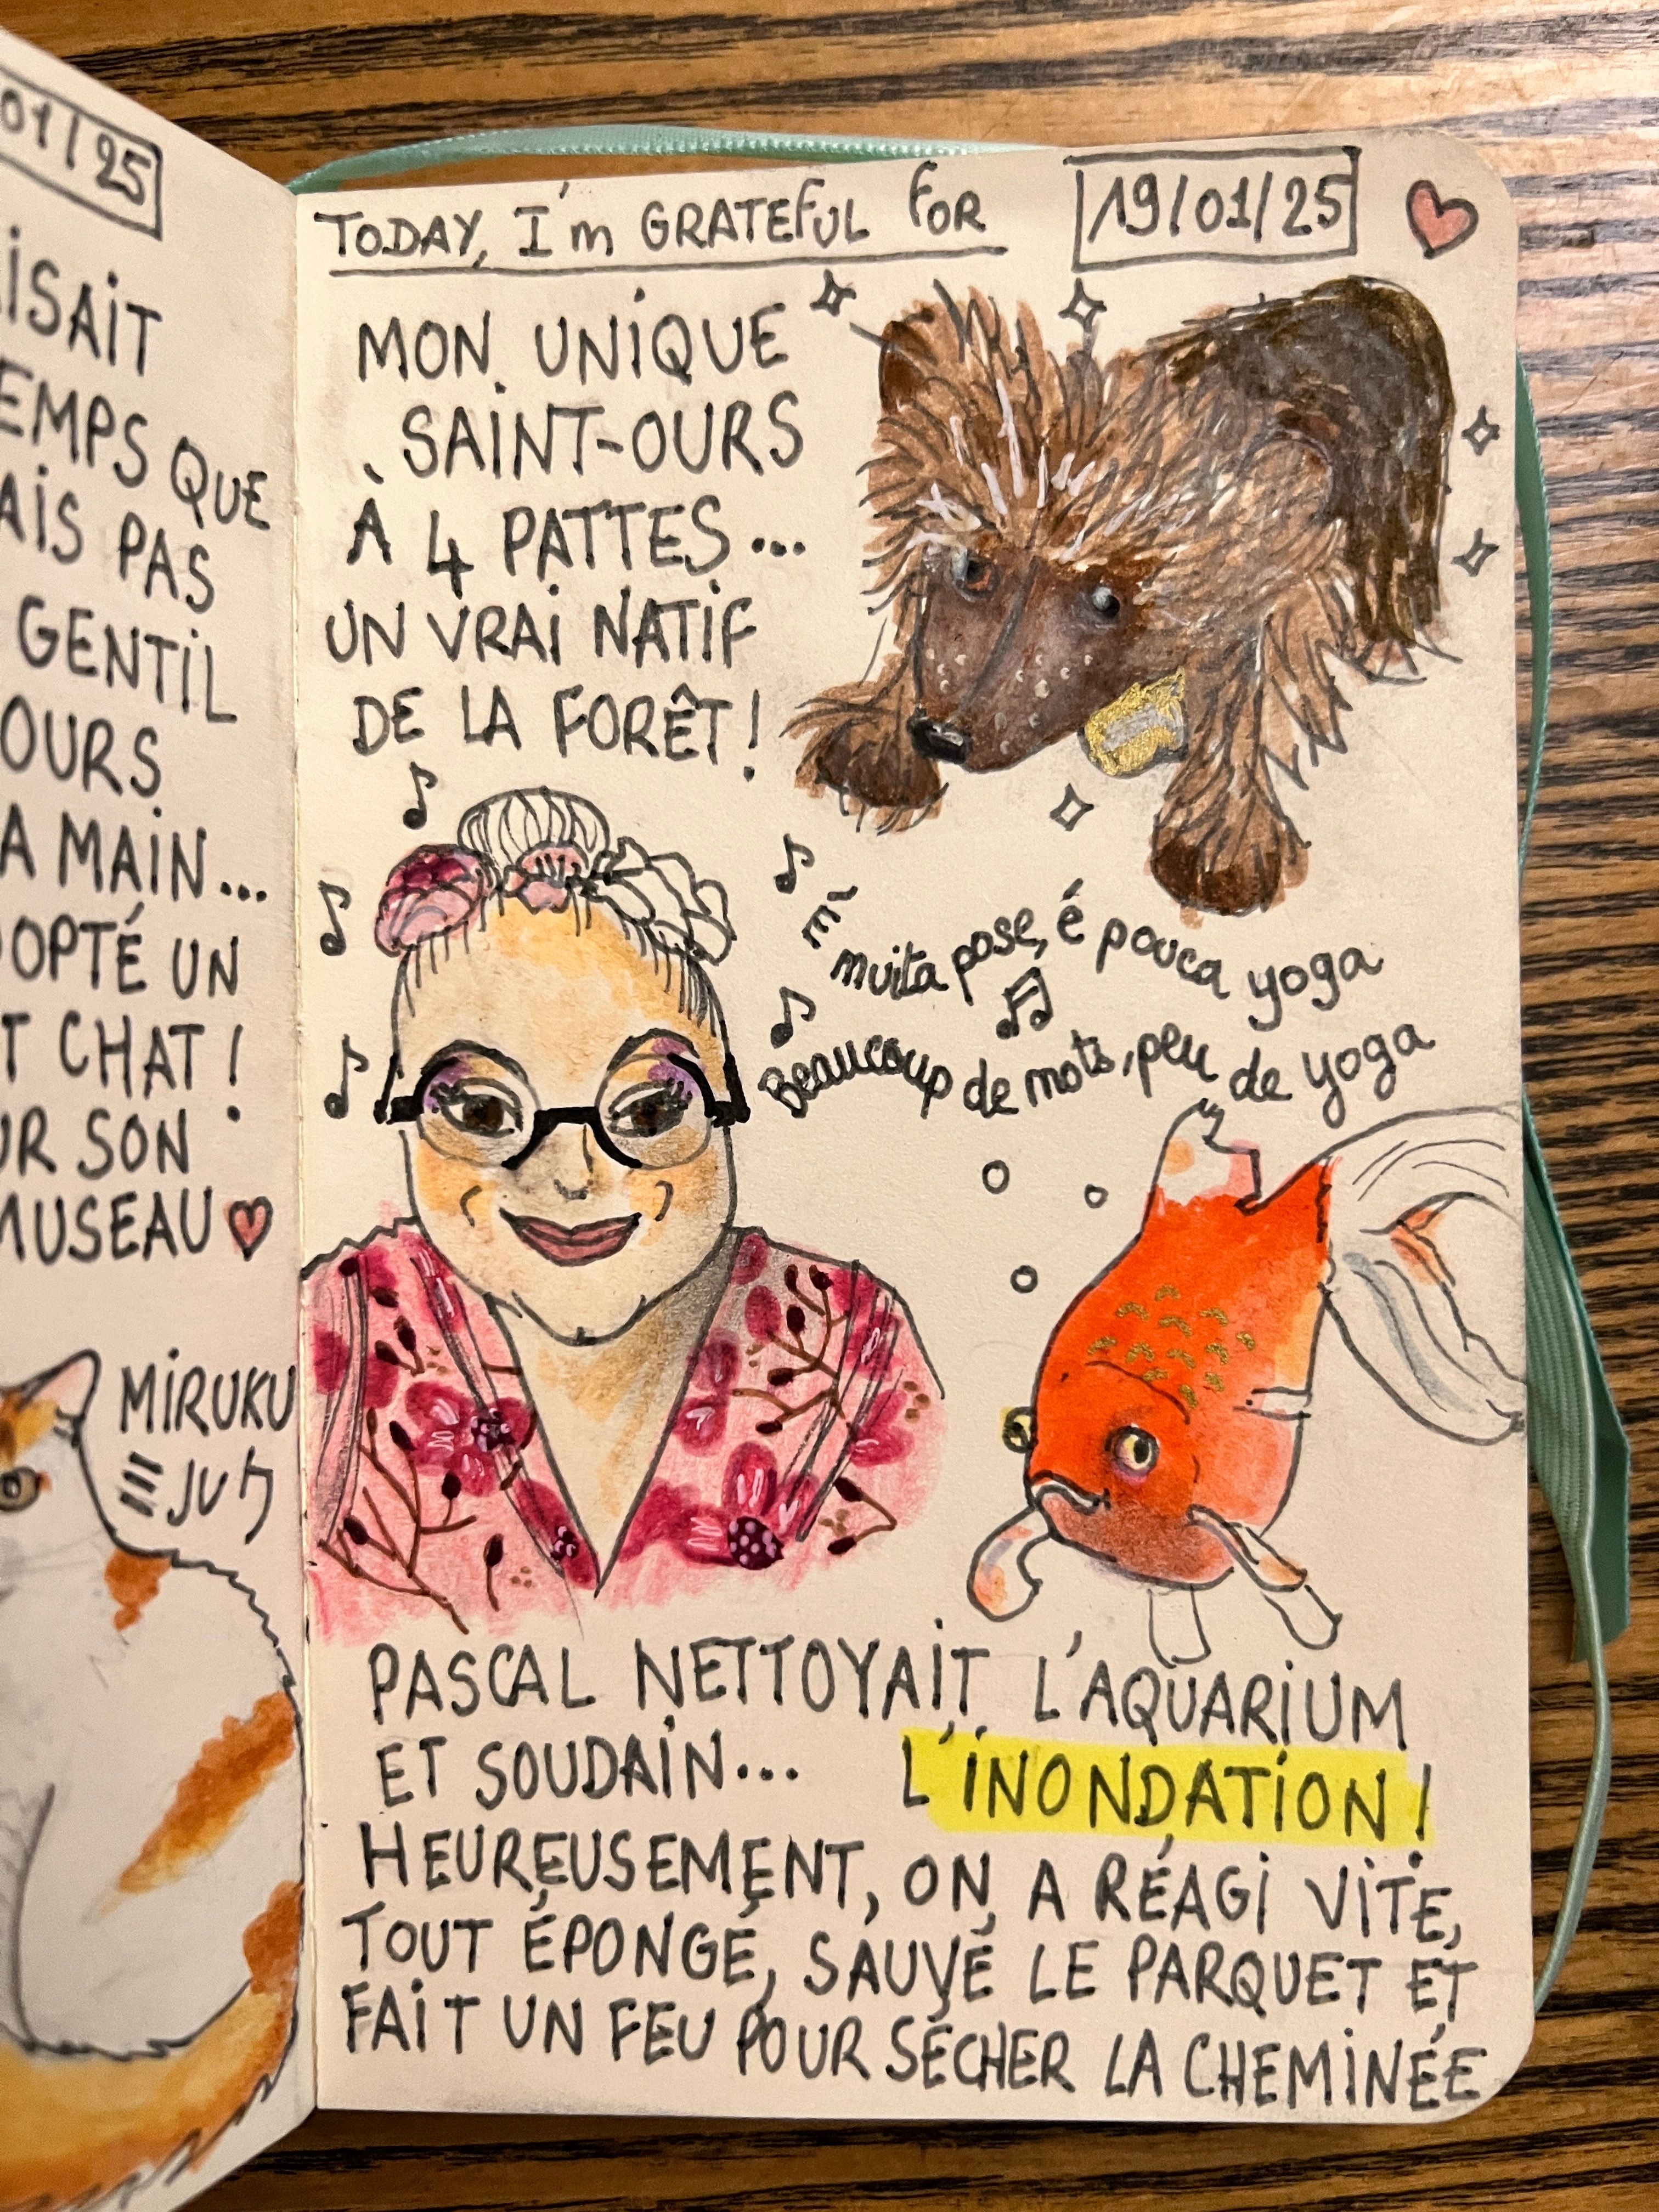 01/25
TEMPS QUE
PAS
GENTIL
OURS
MAIN...
UN
CHAT !
SON
MUSEAU
MIRUKU
TODAY, I'm GRATEFUL FOR
19/01/25
MON UNIQUE
SAINT-OURS
À 4 PATTES...
UN VRAI NATIF
DE LA FORÊT !
É muita pose, é pouca yoga
Beaucoup de mots, peu de yoga
PASCAL NETTOYAIT L'AQUARIUM
ET SOUDAIN... L'INONDATION !
HEUREUSEMENT, ON A RÉAGI VITE,
TOUT ÉPONGÉ, SAUVÉ LE PARQUET ET
FAIT UN FEU POUR SÉCHER LA CHEMINÉE